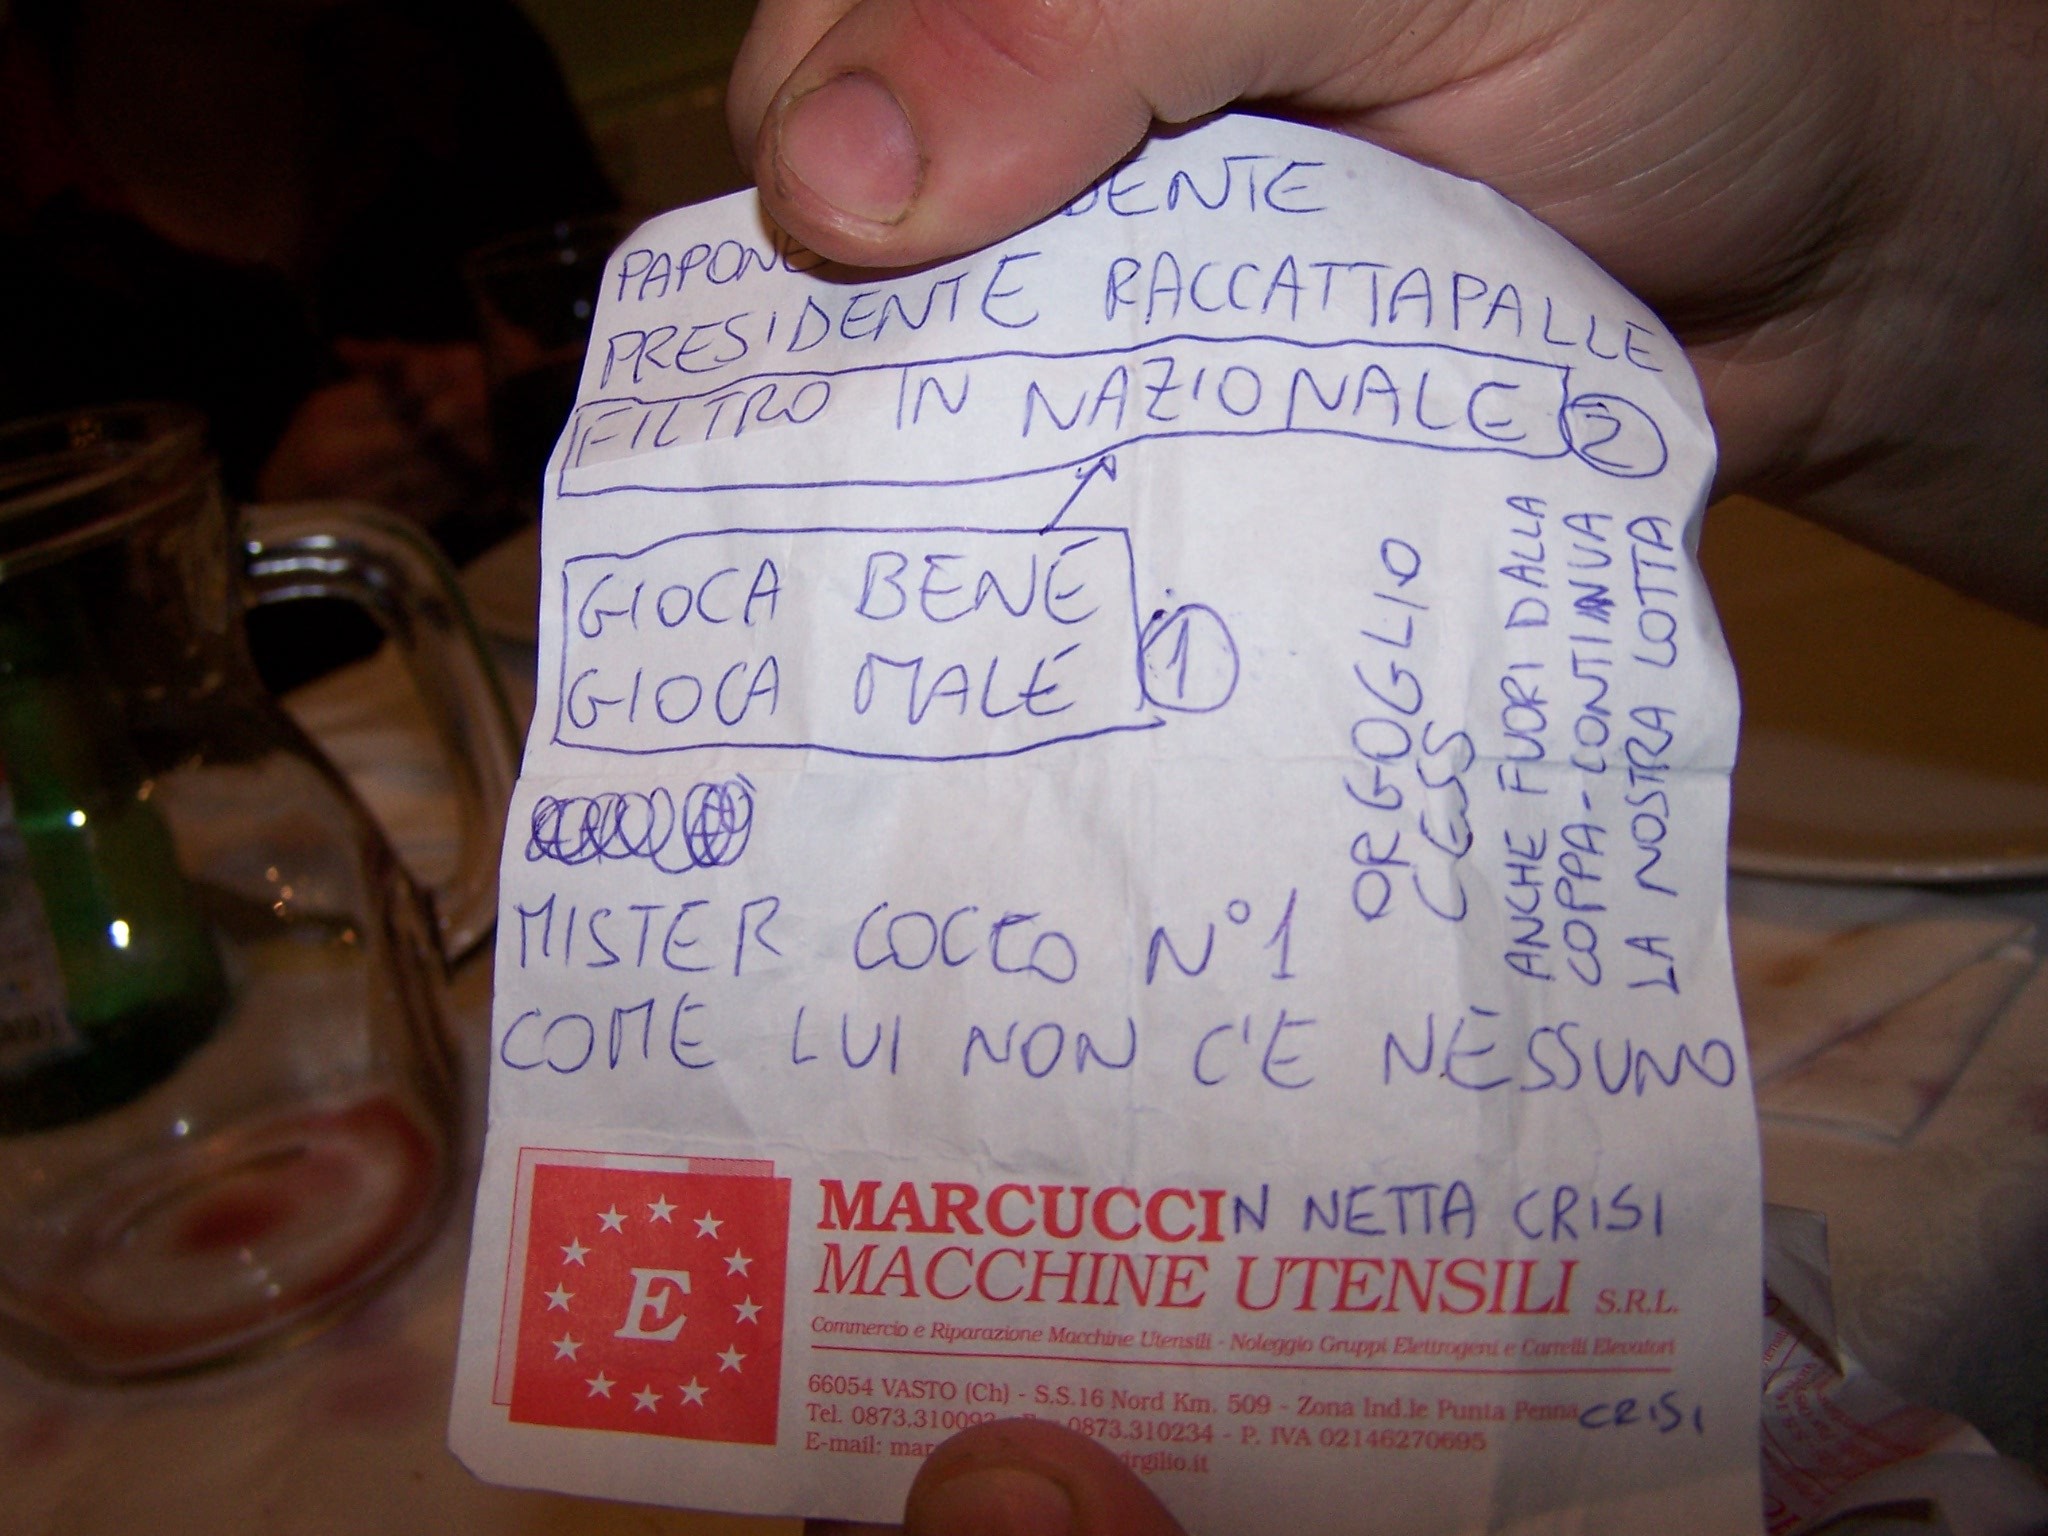 PAPONE
PRESIDENTE RACCATTAPALLE
FILTRO IN NAZIONALE 2
GIOCA BENE
GIOCA MALE
1
ORGOGLIO
CESS
ANCHE FUORI DALLA
COPPA - CONTINUA
LA NOSTRA LOTTA
MISTER COCCO N°1
COME LUI NON C'E NESSUNO
E
MARCUCCIN NETTA CRISI
MACCHINE UTENSILI S.R.L.
Commercio e Riparazione Macchine Utensili - Noleggio Gruppi Elettrogeni e Carrelli Elevatori
66054 VASTO (Ch) - S.S.16 Nord Km. 509 - Zona Ind.le Punta Penna CRISI
Tel. 0873.310093 - Fax 0873.310234 - P. IVA 02146270695
E-mail: